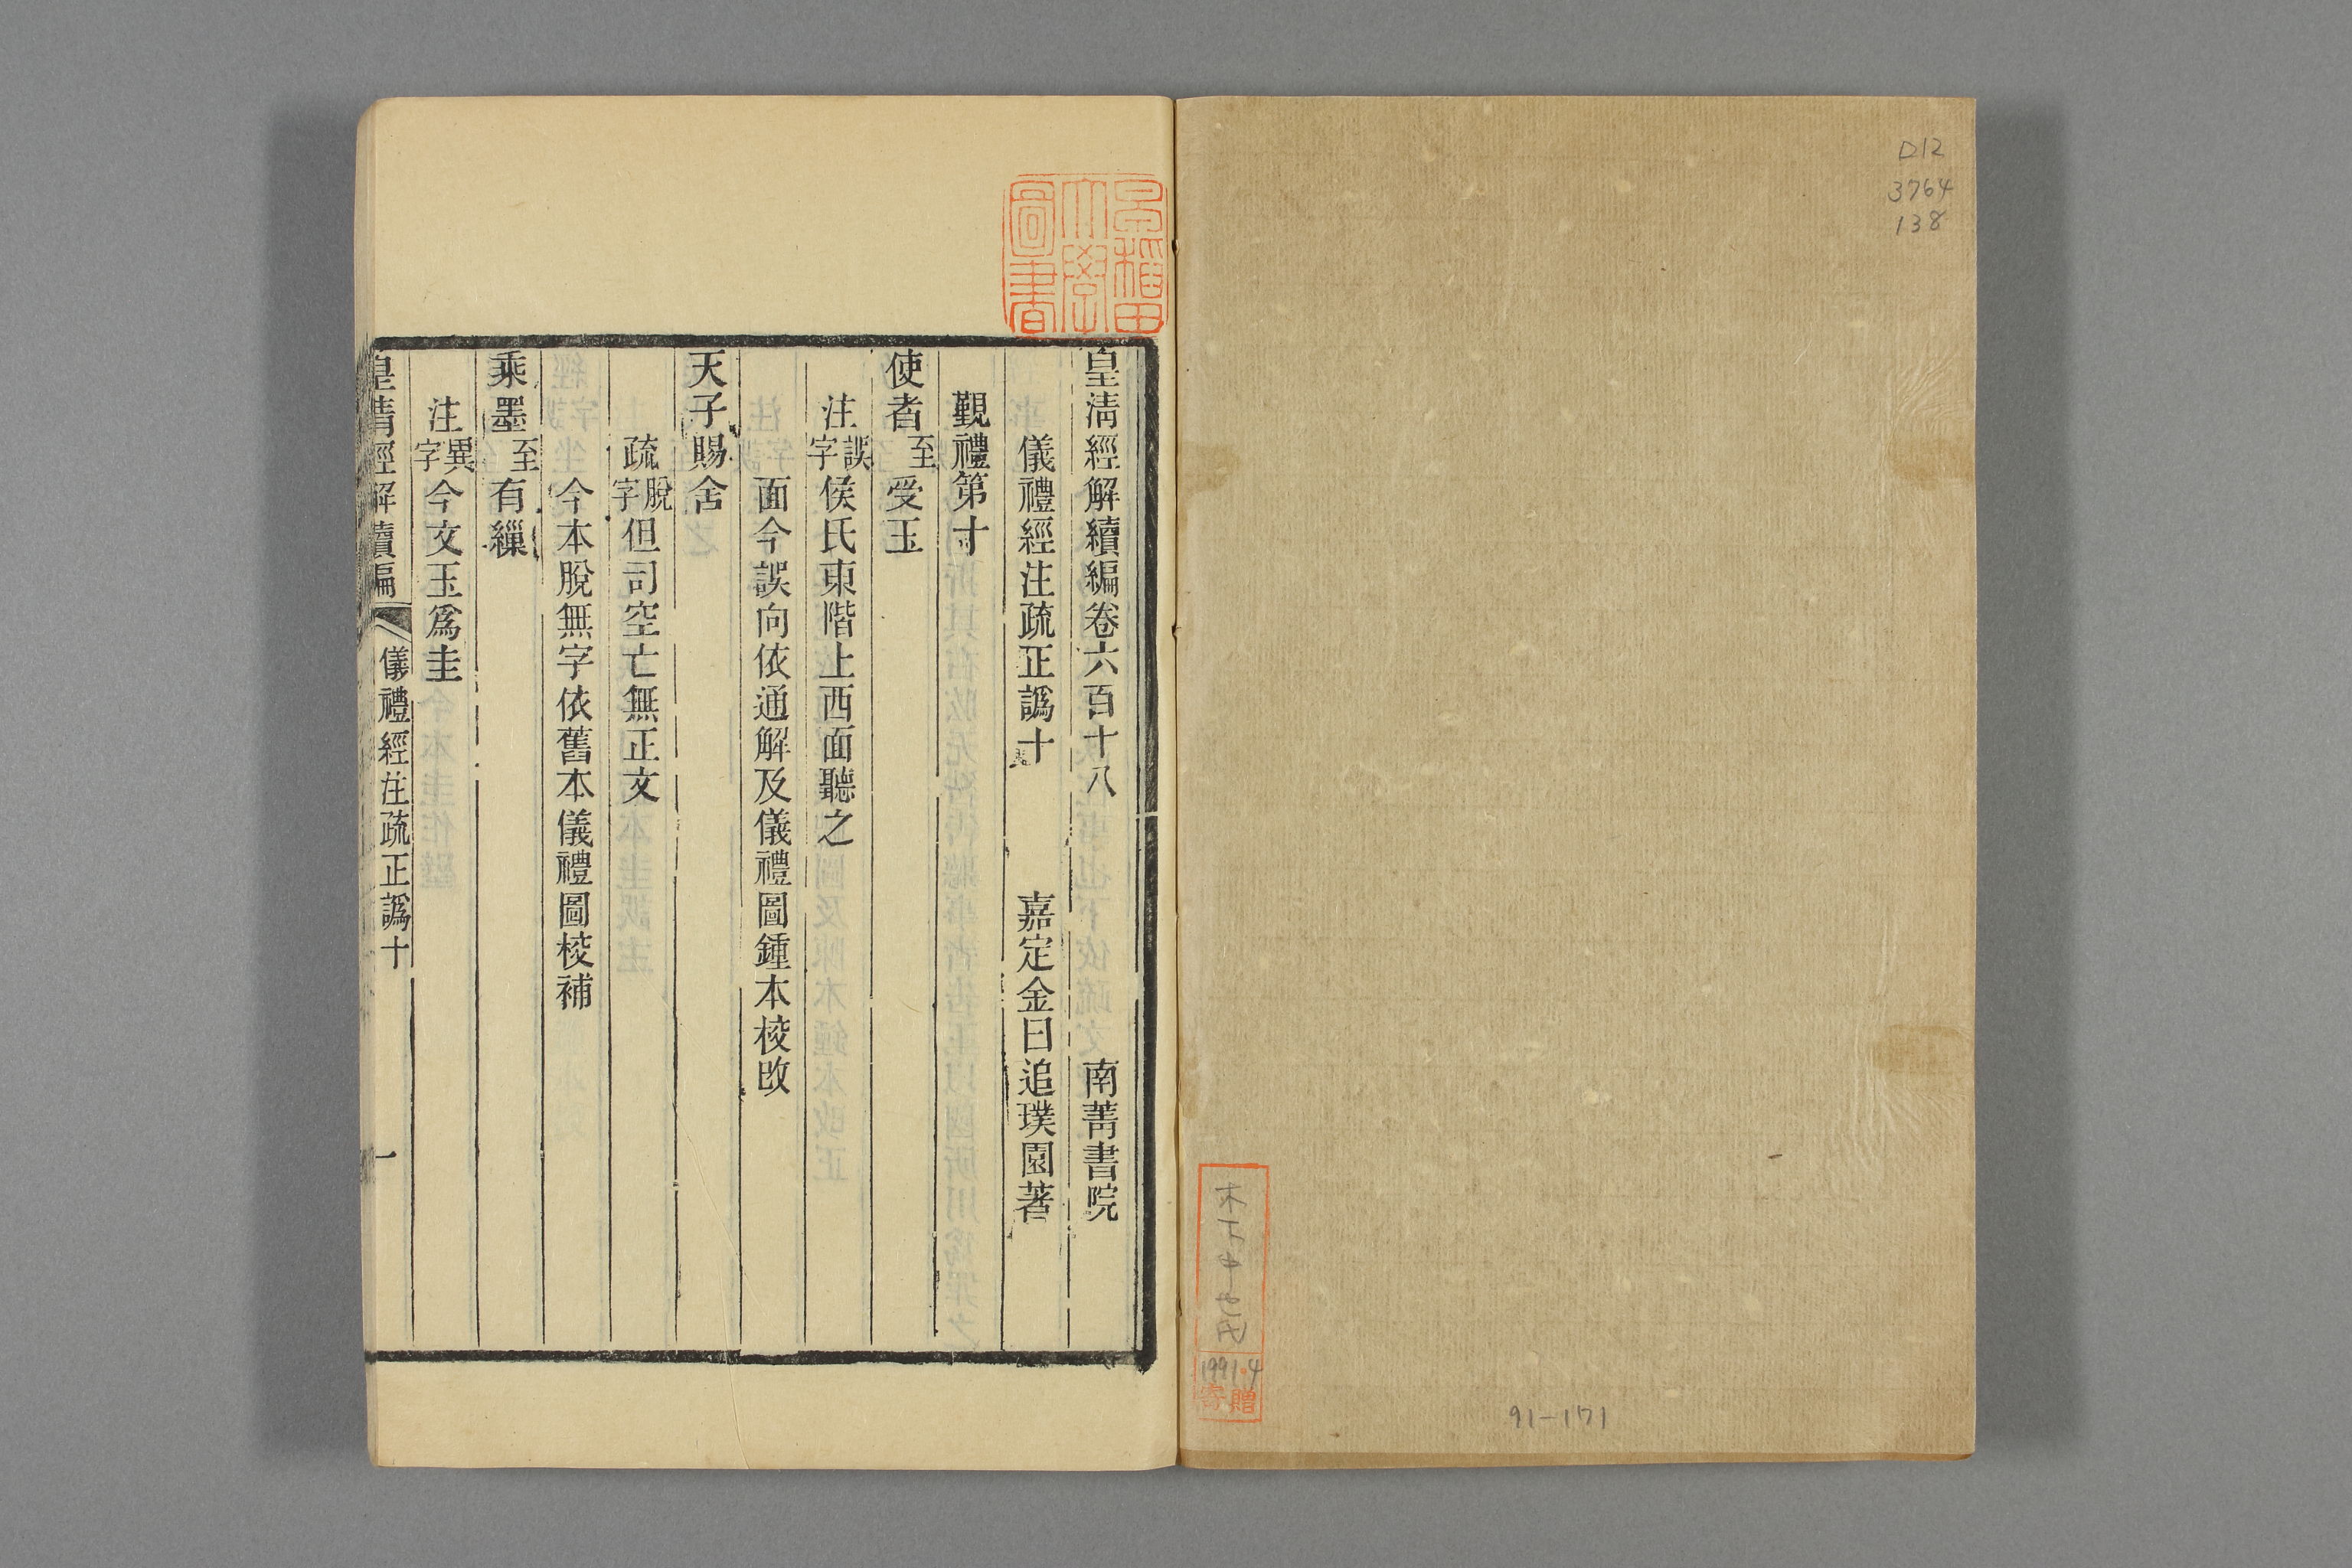 D12
3764
138
木下中也氏
1991.4
寄贈
91-171
早稲田
大學
圖書
皇清經解續編卷六百十八 南菁書院
儀禮經注疏正譌十 嘉定金曰追璞園著
覲禮第十
使者至受玉
注誤字侯氏東階上西面聽之
面今誤向依通解及儀禮圖鍾本校改
天子賜舍
疏脫字但司空亡無正文
今本脫無字依舊本儀禮圖校補
乘墨至有繅
注異字今文玉爲圭
皇清經解續編 儀禮經注疏正譌十 一